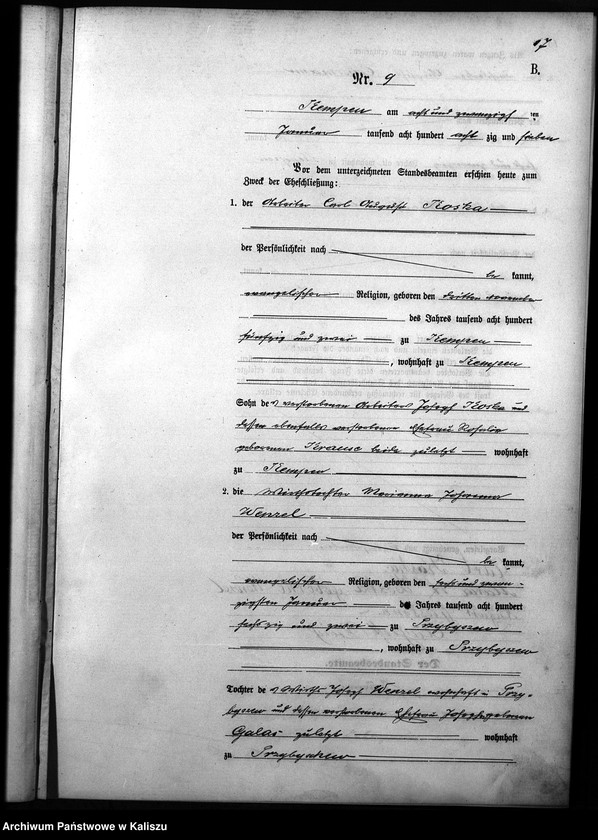 17
B.
Nr. 9
Kempen am acht und zwanzig ten
Januar tausend acht hundert acht zig und sieben
Vor dem unterzeichneten Standesbeamten erschien heute zum
Zweck der Eheschließung:
1. der Arbeiter Carl August Koska
der Persönlichkeit nach
be kannt,
evangelischer Religion, geboren den dritten
des Jahres tausend acht hundert
fünfzig und zwei zu Kempen
, wohnhaft zu Kempen
Sohn des verstorbenen Arbeiters Joseph Koska und
dessen ebenfalls verstorbener Ehefrau Rosalie
geborenen Krause beide zuletzt wohnhaft
zu Kempen
2. die Wirthstochter Marianna Johanna
Wenzel
der Persönlichkeit nach
be kannt,
evangelischer Religion, geboren den sechs und zwan-
zigsten Januar des Jahres tausend acht hundert
sechzig und zwei zu Przybyszew
, wohnhaft zu Przybyszew
Tochter des Wirths Joseph Wenzel wohnhaft in Przy-
byszew und dessen verstorbenen Ehefrau geborenen
zuletzt wohnhaft
zu Przybyszew
Der Standesbeamte.
Archiwum Państwowe w Kaliszu